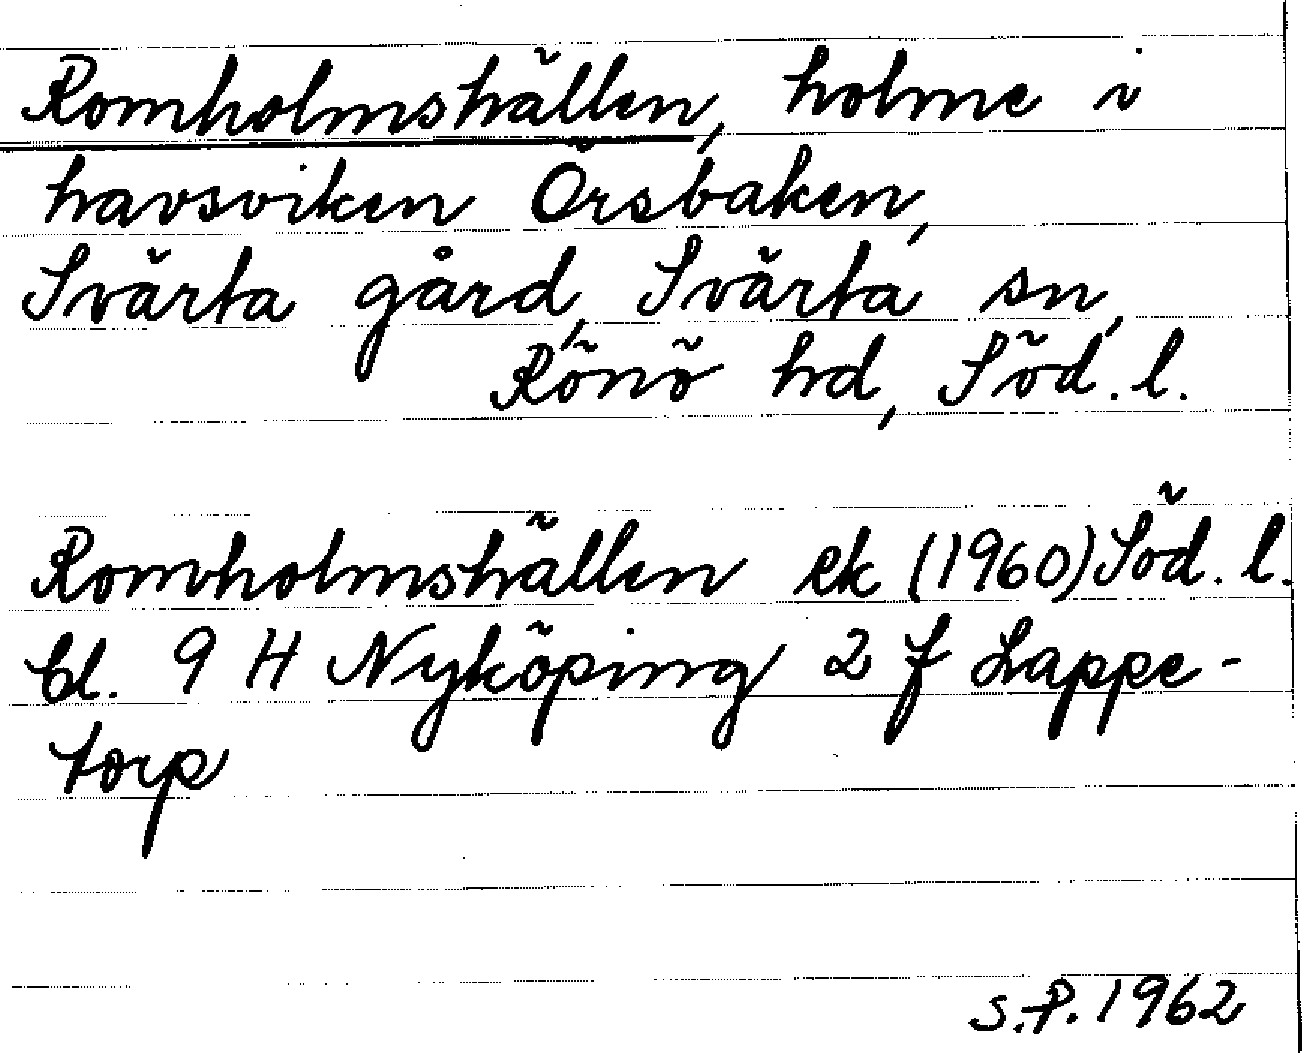 Romholmshällen, holme i
havsviken Örsbaken,
Svärta gård, Svärta sn,
Rönö hd, Söd. l.
Romholmshällen ek (1960) Söd. l.
bl. 9 H Nyköping 2 f Lappe-
torp
S.P. 1962